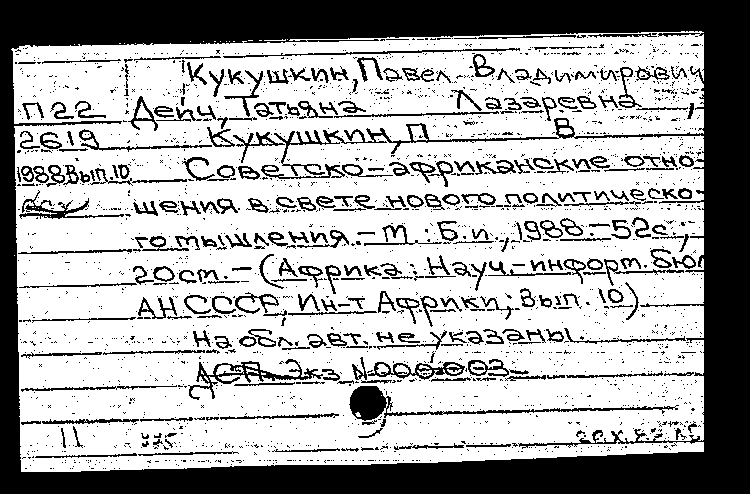 Кукушкин, Павел Владимирович
П22 Дейч, Татьяна Лазаревна,
2619 Кукушкин, П В
1988 Вып. 10 Советско-африканские отно-
шения в свете нового политическо-
го мышления. - М. : Б.и., 1988. - 52с.;
20 см. - (Африка: Науч.-информ. Бюл
АН СССР, Ин-т Африки; Вып. 10).
На обл. авт. не указаны.
Экз N 000003
11